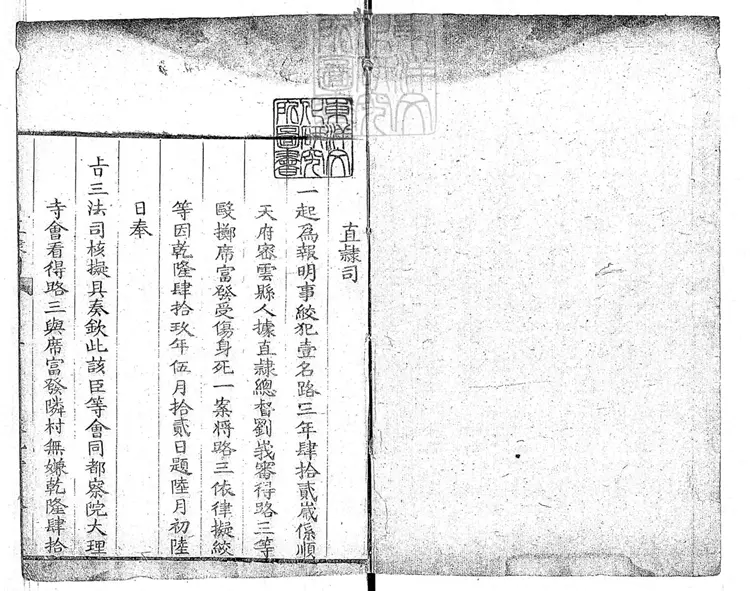 直隸司
一起為報明事絞犯壹名路三年肆拾貳歲係順
天府密雲縣人據直隸總督劉峩審得路三等
毆擲席富發受傷身死一案將路三依律擬絞
等因乾隆肆拾玖年伍月拾貳日題陸月初陸
日奉
旨三法司核擬具奏欽此該臣等會同都察院大理
寺會看得路三與席富發隣村無嫌乾隆肆拾
東洋文
化研究
所圖書